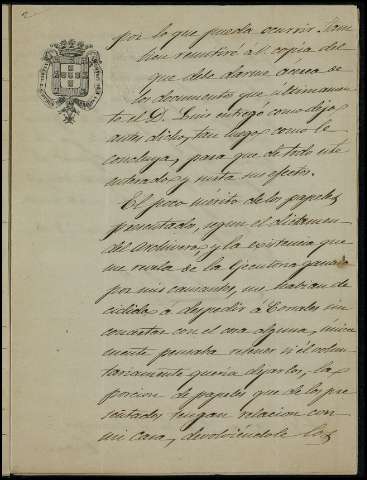 2
por lo que pueda ocurrir. Tam
bien remitiré á V. copia del
que debe darme acerca de
los documentos que ultimamen
te el D. Luis entregó como dejo
antes dicho, tan luego como le
concluya, para que de todo esté
enterado y surta sus efectos.
El poco mérito de los papeles
presentados, segun el dictamen
del Archivero, y la existencia que
me revela de la Ejecutoria ganada
por mis causantes, me habian de
cidido á despedir á Corrales sin
concretar con el cosa alguna, única
mente pensaba retener si él volun
tariamente queria dejarlos, la
porcion de papeles que de los pre
sentados tengan relacion con
mi casa, devolviéndole los